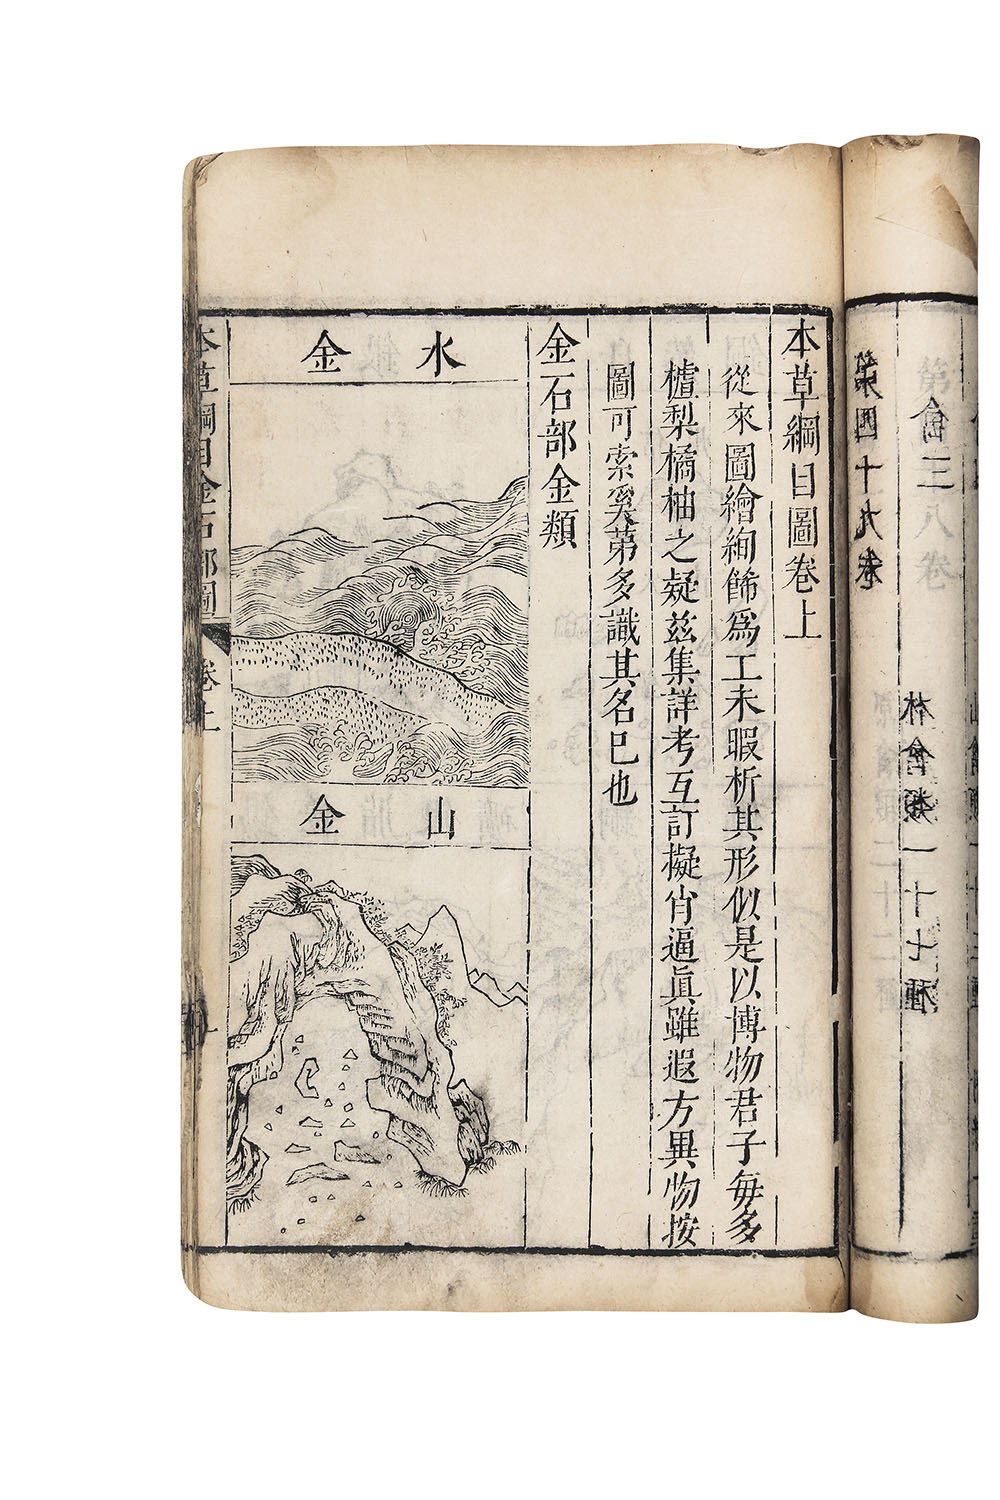 本草綱目圖卷上
從來圖繪絢餙爲工未暇析其形似是以博物君子每多
樝梨橘柚之疑茲集詳考互訂擬肖逼眞雖遐方異物按
圖可索奚第多識其名已也
金石部金類
水金
山金
本草綱目金石部圖
卷上
一